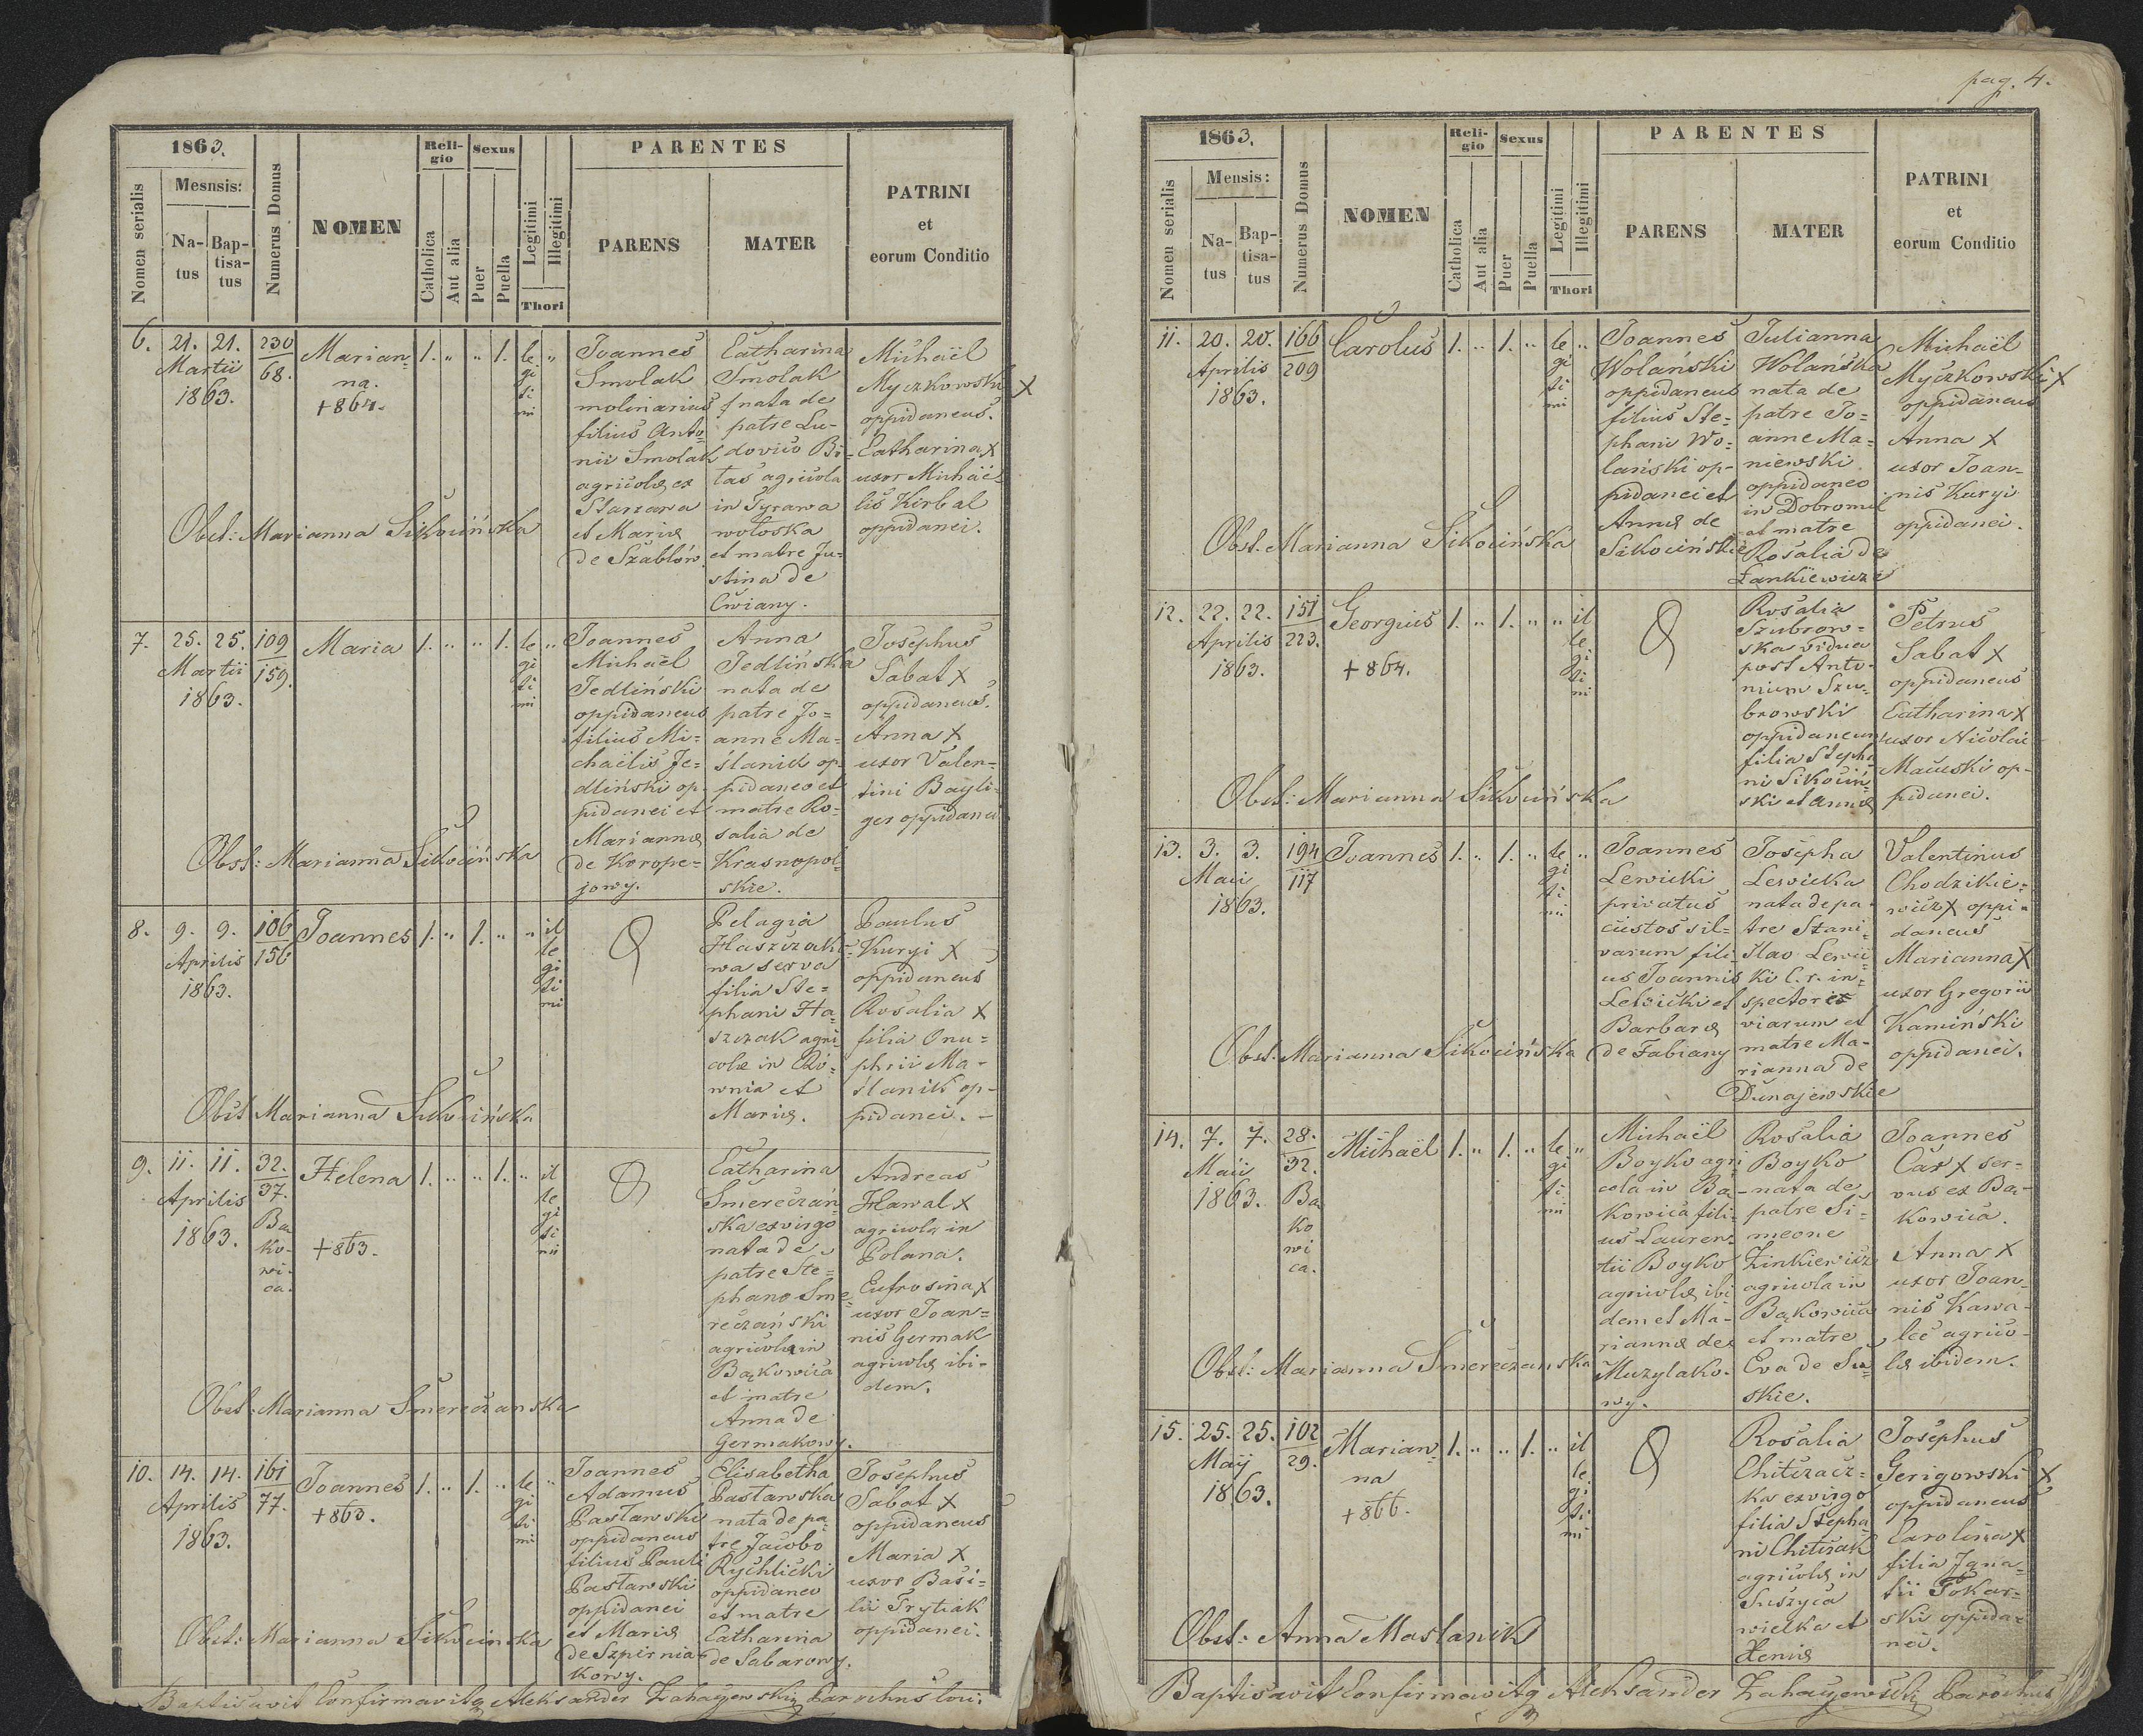 pag. 4.
1863.
Mesnsis:
Nomen serialis
Na-
tus
Bap-
tisa-
tus
Numerus Domus
NOMEN
Reli-
gio
Catholica
Aut alia
Sexus
Puer
Puella
Legitimi
Illegitimi
Thori
PARENTES
PARENS
MATER
PATRINI
et
eorum Conditio
6.
21. 21.
Martii
1863.
230
68.
Marian=
na.
+864.
1. " " 1.
le
gi
ti
mi
"
Joannes
Smolak
molinarius
filius Anto=
nii Smolak
agricolæ ex
Starzawa
et Mariæ
de Szablów.
Catharina
Smolak
nata de
patre Lu-
dovico Bi-
tas agricola
in Tyrawa
wołoska
et matre Ju-
stina de
Cwiany.
Michaël
Myczkowski X
oppidaneus.
Catharina X
uxor Michaë-
lis Kirbal
oppidanei.
Obst: Marianna Sikocińska
7.
25. 25.
Martii
1863.
109
159.
Maria
1. " " 1.
le
gi
ti
mi
"
Joannes
Michaël
Jedliński
oppidaneus
filius Mi=
chaëlis Je=
dliński op-
pidanei et
Mariannæ
de Korope=
jowy.
Anna
Jedlińska
nata de
patre Jo=
anne Ma-
ślanik op-
pidaneo et
matre Ro-
salia de
Krasnopol-
skie.
Josephus
Sabat X
oppidaneus.
Anna X
uxor Valen=
tini Bayli-
ger oppidanei
Obst: Marianna Sikocińska
8.
9. 9.
Aprilis
1863.
106
156
Joannes
1. " 1. " "
il
le
gi
ti
mi
Pelagia
Haszczako=
wa serva
filia Ste=
phani Ha=
szczak agri
colæ in
wnia et
Mariæ.
Paulus
Kuryi X
oppidaneus
Rosalia X
filia Onu=
phrii Ma-
ślanik op-
pidanei. -
Obst: Marianna Sikocińska
9.
11. 11.
Aprilis
1863.
32.
37.
Ba
ko-
wi-
ca.
Helena
+863.
1. " " 1. "
il
le
gi
ti
mi
Catharina
Smereczań
ska exvirgo
nata de
patre Ste=
phano Sme=
reczański
agricola in
Bąkowica
et matre
Anna de
Germakowy.
Andreas
Hawal X
agricola in
Polana.
Eufrosina X
uxor Joan=
nis Germak
agricolæ ibi-
dem.
Obst: Marianna Smereczanska
10.
14. 14.
Aprilis
1863.
161
77.
Joannes
+863.
1. " 1. "
le
gi
ti
mi
"
Joannes
Adamus
Pastawski
oppidaneus
filius Pauli
Pastawski
oppidanei
et Mariæ
de Szpirnia-
kowy.
Elisabetha
Pastawska
nata de pa-
tre Jacobo
Rychlicki
oppidaneo
et matre
Catharina
de Sabarowy.
Josephus
Sabat X
oppidaneus
Maria X
uxor Basi=
lii Trytiak
oppidanei.
Obst: Marianna Sikocinska
Baptisavit Confirmavitq Aleksander Zahayewski Parochus loci.
1863.
Mensis:
Nomen serialis
Na-
tus
Bap-
tisa-
tus
Numerus Domus
NOMEN
Reli-
gio
Catholica
Aut alia
Sexus
Puer
Puella
Legitimi
Illegitimi
Thori
PARENTES
PARENS
MATER
PATRINI
et
eorum Conditio
11.
20. 20.
Aprilis
1863.
166
209
Carolus
1. " 1. "
le
gi
ti
mi
"
Joannes
Wolański
oppidaneus
filius Ste=
phani Wo=
lański op-
pidanei et
Annæ de
Sikocińskie
Julianna
Wolańska
nata de
patre Jo=
anne Ma=
niewski
oppidaneo
in Dobromil
et matre
Rosalia de
Łankiewicze
Michaël
Myczkowski X
oppidaneus
Anna X
uxor Joan=
nis Kuryi
oppidanei.
Obst. Marianna Sikocińska
12.
22. 22.
Aprilis
1863.
151
223.
Georgius
+864.
1. " 1. " "
il
le
gi
ti
mi
Rosalia
Szubrow=
ska vidua
post Anto-
nium Szu-
browski
oppidaneum
filia Stepha
ni Sikociń-
ski et Annæ
Petrus
Sabat X
oppidaneus
Catharina X
uxor Nicolai
Macuski op-
pidanei.
Obst: Marianna Sikocińska
13.
3. 3.
Maii
1863.
194
117
Joannes
1. " 1. "
le
gi
ti
mi
"
Joannes
Lewicki
privatus
custos sil=
varum fili=
us Joannis
Lewicki et
Barbaræ
de Fabiany
Josepha
Lewicka
nata de pa-
tre Stani-
slao Lewic
ki C. r. in=
spectore
viarum et
matre Ma-
rianna de
Dunajewskie
Valentinus
Chodzikie=
wicz X oppi=
daneus
Marianna X
uxor Gregorii
Kamiński
oppidanei.
Obst: Marianna Sikocińska
14.
7. 7.
Maii
1863.
28.
32.
Ba
ko
wi
ca.
Michaël
1. " 1. "
le
gi
ti
mi
"
Michaël
Boyko agri
cola in Ba-
kowica fili-
us Lauren-
tii Boyko
agricolæ ibi
dem et Ma-
riannæ de
Muzylako-
wy.
Rosalia
Boyko
nata de
patre Si-
meone
Zinkiewicz
agricola in
Bąkowica
et matre
Eva de Su
skie.
Joannes
Car X ser-
vus ex Ba-
kowica.
Anna X
uxor Joan-
nis Kawa-
lec agrico-
læ ibidem.
Obst: Marianna Smereczanska
15.
25. 25.
Maij
1863.
102
29.
Marian=
na
+866.
1. " " 1. "
il
le
gi
ti
mi
Rosalia
Chitczacz-
ka exvirgo
filia Stepha
ni Chitczak
agricolæ in
Suszyca
wielka et
Xeniæ
Josephus
Gerigowski X
oppidaneus
Carolina X
filia Igna-
tii Tokar=
ski oppida-
nei.
Obst: Anna Maslanik
Baptisavit Confirmavitq Aleksander Zahayewski Parochus